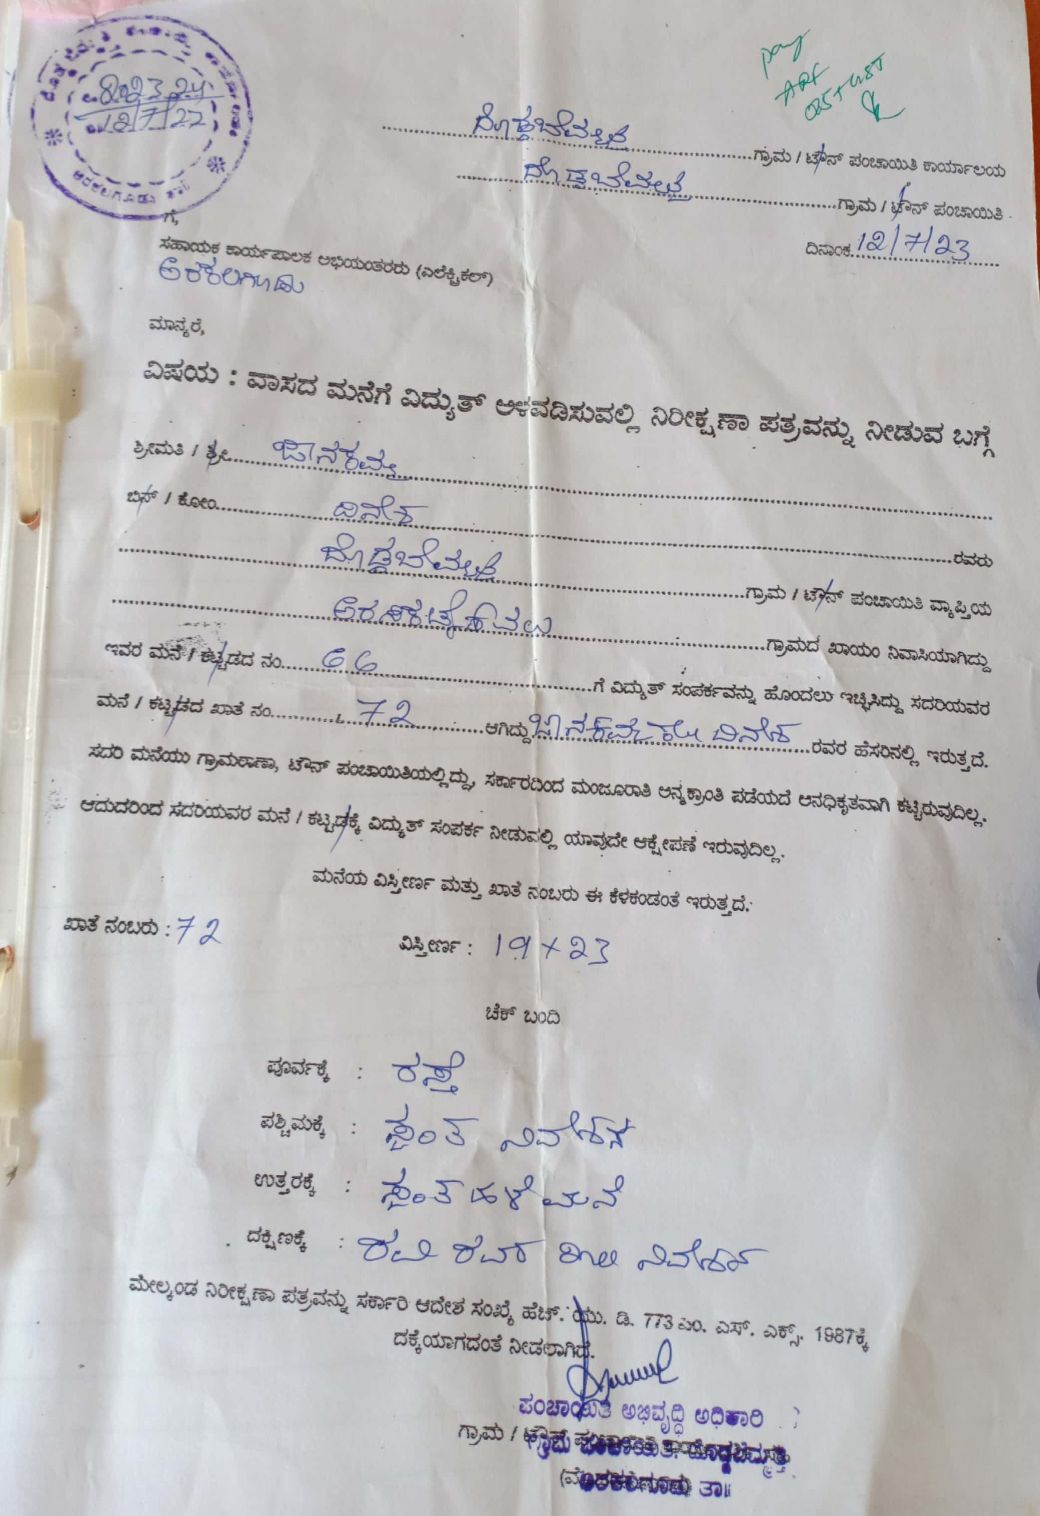 82324
12/7/22
ಅರಕಲಗೂಡು ತಾ॥
pay
ದೊಡ್ಡಬೆಮ್ಮತ್ತಿ ಗ್ರಾಮ / ಟೌನ್ ಪಂಚಾಯಿತಿ ಕಾರ್ಯಾಲಯ
ದೊಡ್ಡಬೆಮ್ಮತ್ತಿ ಗ್ರಾಮ / ಟೌನ್ ಪಂಚಾಯಿತಿ
ದಿನಾಂಕ 12/7/23
ಗೆ,
ಸಹಾಯಕ ಕಾರ್ಯಪಾಲಕ ಅಭಿಯಂತರರು (ಎಲೆಕ್ಟ್ರಿಕಲ್)
ಅರಕಲಗೂಡು
ಮಾನ್ಯರೆ,
ವಿಷಯ : ವಾಸದ ಮನೆಗೆ ವಿದ್ಯುತ್ ಅಳವಡಿಸುವಲ್ಲಿ ನಿರೀಕ್ಷಣಾ ಪತ್ರವನ್ನು ನೀಡುವ ಬಗ್ಗೆ
ಶ್ರೀಮತಿ / ಶ್ರೀ ಜಾನಕಮ್ಮ
ಬಿನ್ / ಕೋಂ ದಿನೇಶ ರವರು
ದೊಡ್ಡಬೆಮ್ಮತ್ತಿ ಗ್ರಾಮ / ಟೌನ್ ಪಂಚಾಯಿತಿ ವ್ಯಾಪ್ತಿಯ
ಅರಸೀಕಟ್ಟೆಕಾವಲು ಗ್ರಾಮದ ಖಾಯಂ ನಿವಾಸಿಯಾಗಿದ್ದು
ಇವರ ಮನೆ / ಕಟ್ಟಡದ ನಂ. 66 ಗೆ ವಿದ್ಯುತ್ ಸಂಪರ್ಕವನ್ನು ಹೊಂದಲು ಇಚ್ಛಿಸಿದ್ದು ಸದರಿಯವರ
ಮನೆ / ಕಟ್ಟಡದ ಖಾತೆ ನಂ. 72 ಆಗಿದ್ದು ಜಾನಕಮ್ಮ ಕೋಂ ದಿನೇಶ ರವರ ಹೆಸರಿನಲ್ಲಿ ಇರುತ್ತದೆ.
ಸದರಿ ಮನೆಯು ಗ್ರಾಮಠಾಣಾ, ಟೌನ್ ಪಂಚಾಯಿತಿಯಲ್ಲಿದ್ದು, ಸರ್ಕಾರದಿಂದ ಮಂಜೂರಾತಿ ಅನ್ಯಕ್ರಾಂತಿ ಪಡೆಯದೆ ಅನಧಿಕೃತವಾಗಿ ಕಟ್ಟಿರುವುದಿಲ್ಲ.
ಆದುದರಿಂದ ಸದರಿಯವರ ಮನೆ / ಕಟ್ಟಡಕ್ಕೆ ವಿದ್ಯುತ್ ಸಂಪರ್ಕ ನೀಡುವಲ್ಲಿ ಯಾವುದೇ ಆಕ್ಷೇಪಣೆ ಇರುವುದಿಲ್ಲ.
ಮನೆಯ ವಿಸ್ತೀರ್ಣ ಮತ್ತು ಖಾತೆ ನಂಬರು ಈ ಕೆಳಕಂಡಂತೆ ಇರುತ್ತದೆ.
ಖಾತೆ ನಂಬರು : 72 ವಿಸ್ತೀರ್ಣ : 19 x 23
ಚೆಕ್ ಬಂದಿ
ಪೂರ್ವಕ್ಕೆ : ರಸ್ತೆ
ಪಶ್ಚಿಮಕ್ಕೆ : ಸ್ವಂತ ನಿವೇಶನ
ಉತ್ತರಕ್ಕೆ : ಸ್ವಂತ ಹಳೆ ಮನೆ
ದಕ್ಷಿಣಕ್ಕೆ : ರವಿ ರವರ ಖಾಲಿ ನಿವೇಶನ
ಮೇಲ್ಕಂಡ ನಿರೀಕ್ಷಣಾ ಪತ್ರವನ್ನು ಸರ್ಕಾರಿ ಆದೇಶ ಸಂಖ್ಯೆ ಹೆಚ್. ಯು. ಡಿ. 773 ಎಂ. ಎಸ್. ಎಕ್ಸ್. 1987ಕ್ಕೆ
ದಕ್ಕೆಯಾಗದಂತೆ ನೀಡಲಾಗಿದೆ.
ಪಂಚಾಯಿತಿ ಅಭಿವೃದ್ಧಿ ಅಧಿಕಾರಿ
ಗ್ರಾಮ ಪಂಚಾಯಿತಿ ದೊಡ್ಡಬೆಮ್ಮತ್ತಿ
ಅರಕಲಗೂಡು ತಾ॥